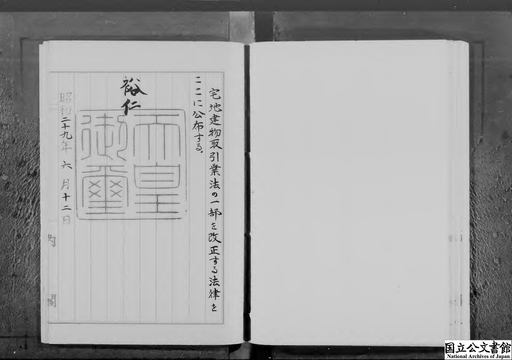 宅地建物取引業法の一部を改正する法律を
ここに公布する。
裕仁
天皇
御璽
昭和二十九年六月十二日
内閣
国立公文書館
National Archives of Japan